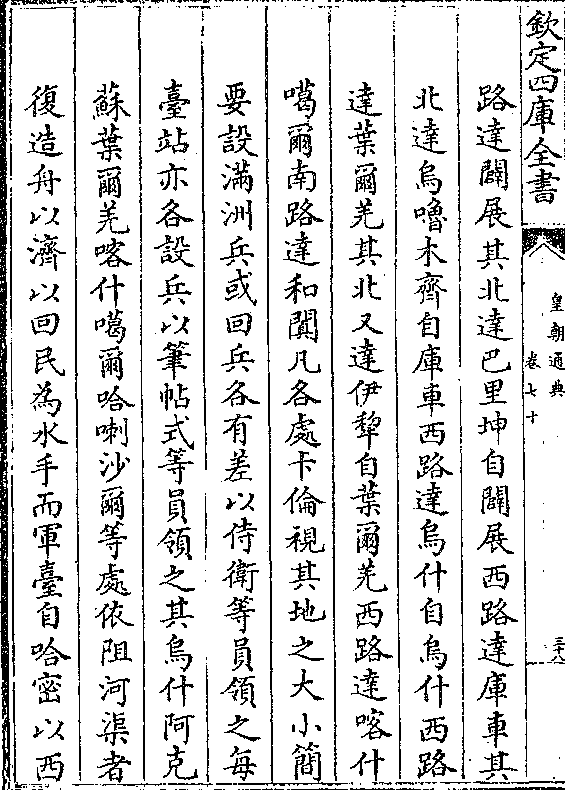 欽定四庫全書
皇朝通典
卷七十
三十八
路達闢展其北達巴里坤自闢展西路達庫車其
北達烏嚕木齊自庫車西路達烏什自烏什西路
達葉爾羌其北又達伊犂自葉爾羌西路達喀什
噶爾南路達和闐凡各處卡倫視其地之大小簡
要設滿洲兵或回兵各有差以侍衛等員領之每
臺站亦各設兵以筆帖式等員領之其烏什阿克
蘇葉爾羌喀什噶爾哈喇沙爾等處依阻河渠者
復造舟以濟以回民為水手而軍臺自哈密以西